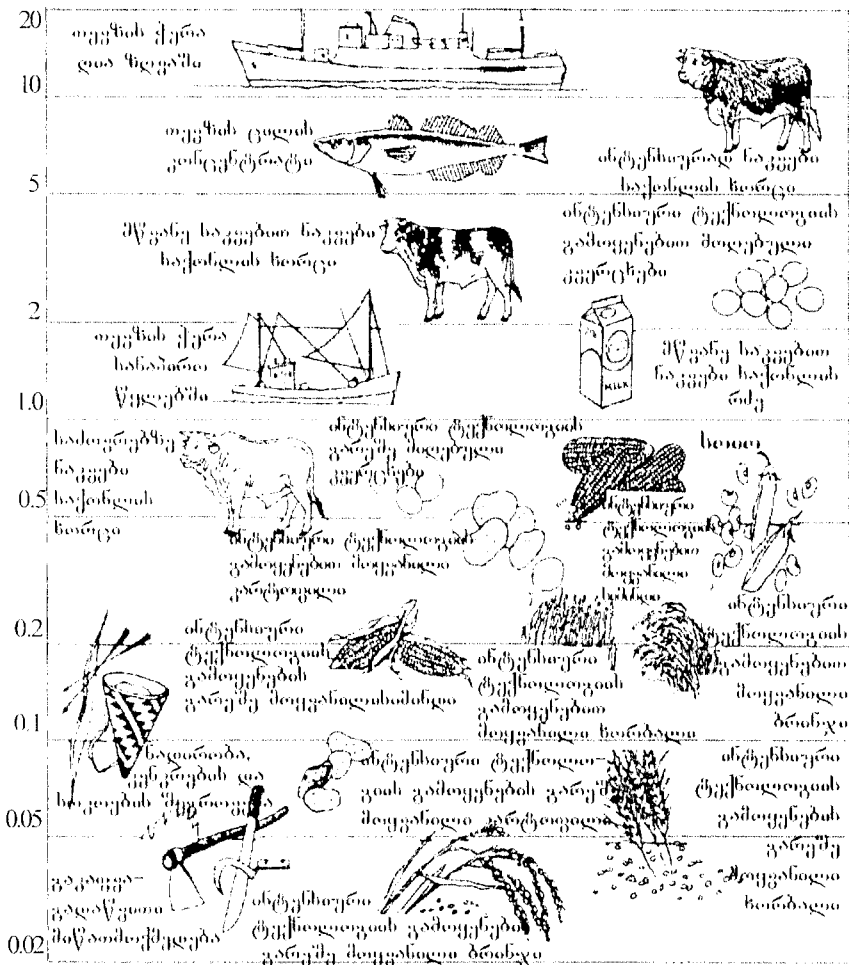 20
თევზის ჭერა
ღია ზღვაში
10
თევზის ცილის
კონცენტრატი
ინტენსიურად ნაკვები
საქონლის ხორცი
5
მწვანე საკვებით ნაკვები
საქონლის ხორცი
ინტენსიური ტექნოლოგიის
გამოყენებით მიღებული
კვერცხები
2
თევზის ჭერა
სანაპირო
წყლებში
MILK
მწვანე საკვებით
ნაკვები საქონლის
რძე
1.0
საძოვრებზე
ნაკვები
საქონლის
ხორცი
ინტენსიური ტექნოლოგიის
გარეშე მიღებული
კვერცხები
სოიო
0.5
ინტენსიური
ტექნოლოგიის
გამოყენებით
მოყვანილი
სიმინდი
ინტენსიური ტექნოლოგიის
გამოყენებით მოყვანილი
კარტოფილი
0.2
ინტენსიური
ტექნოლოგიის
გამოყენების
გარეშე მოყვანილისიმინდი
ინტენსიური
ტექნოლოგიის
გამოყენებით
მოყვანილი ხორბალი
ინტენსიური
ტექნოლოგიის
გამოყენებით
მოყვანილი
ბრინჯი
0.1
ნადირობა,
კენკრების და
სოკოების შეგროვება
ინტენსიური ტექნოლო-
გიის გამოყენების გარეშე
მოყვანილი კარტოფილი
ინტენსიური
ტექნოლოგიის
გამოყენების
გარეშე
მოყვანილი
ხორბალი
0.05
გაკაფვა-
გადაწვითი
მიწათმოქმედება
ინტენსიური
ტექნოლოგიის გამოყენების
გარეშე მოყვანილი ბრინჯი
0.02